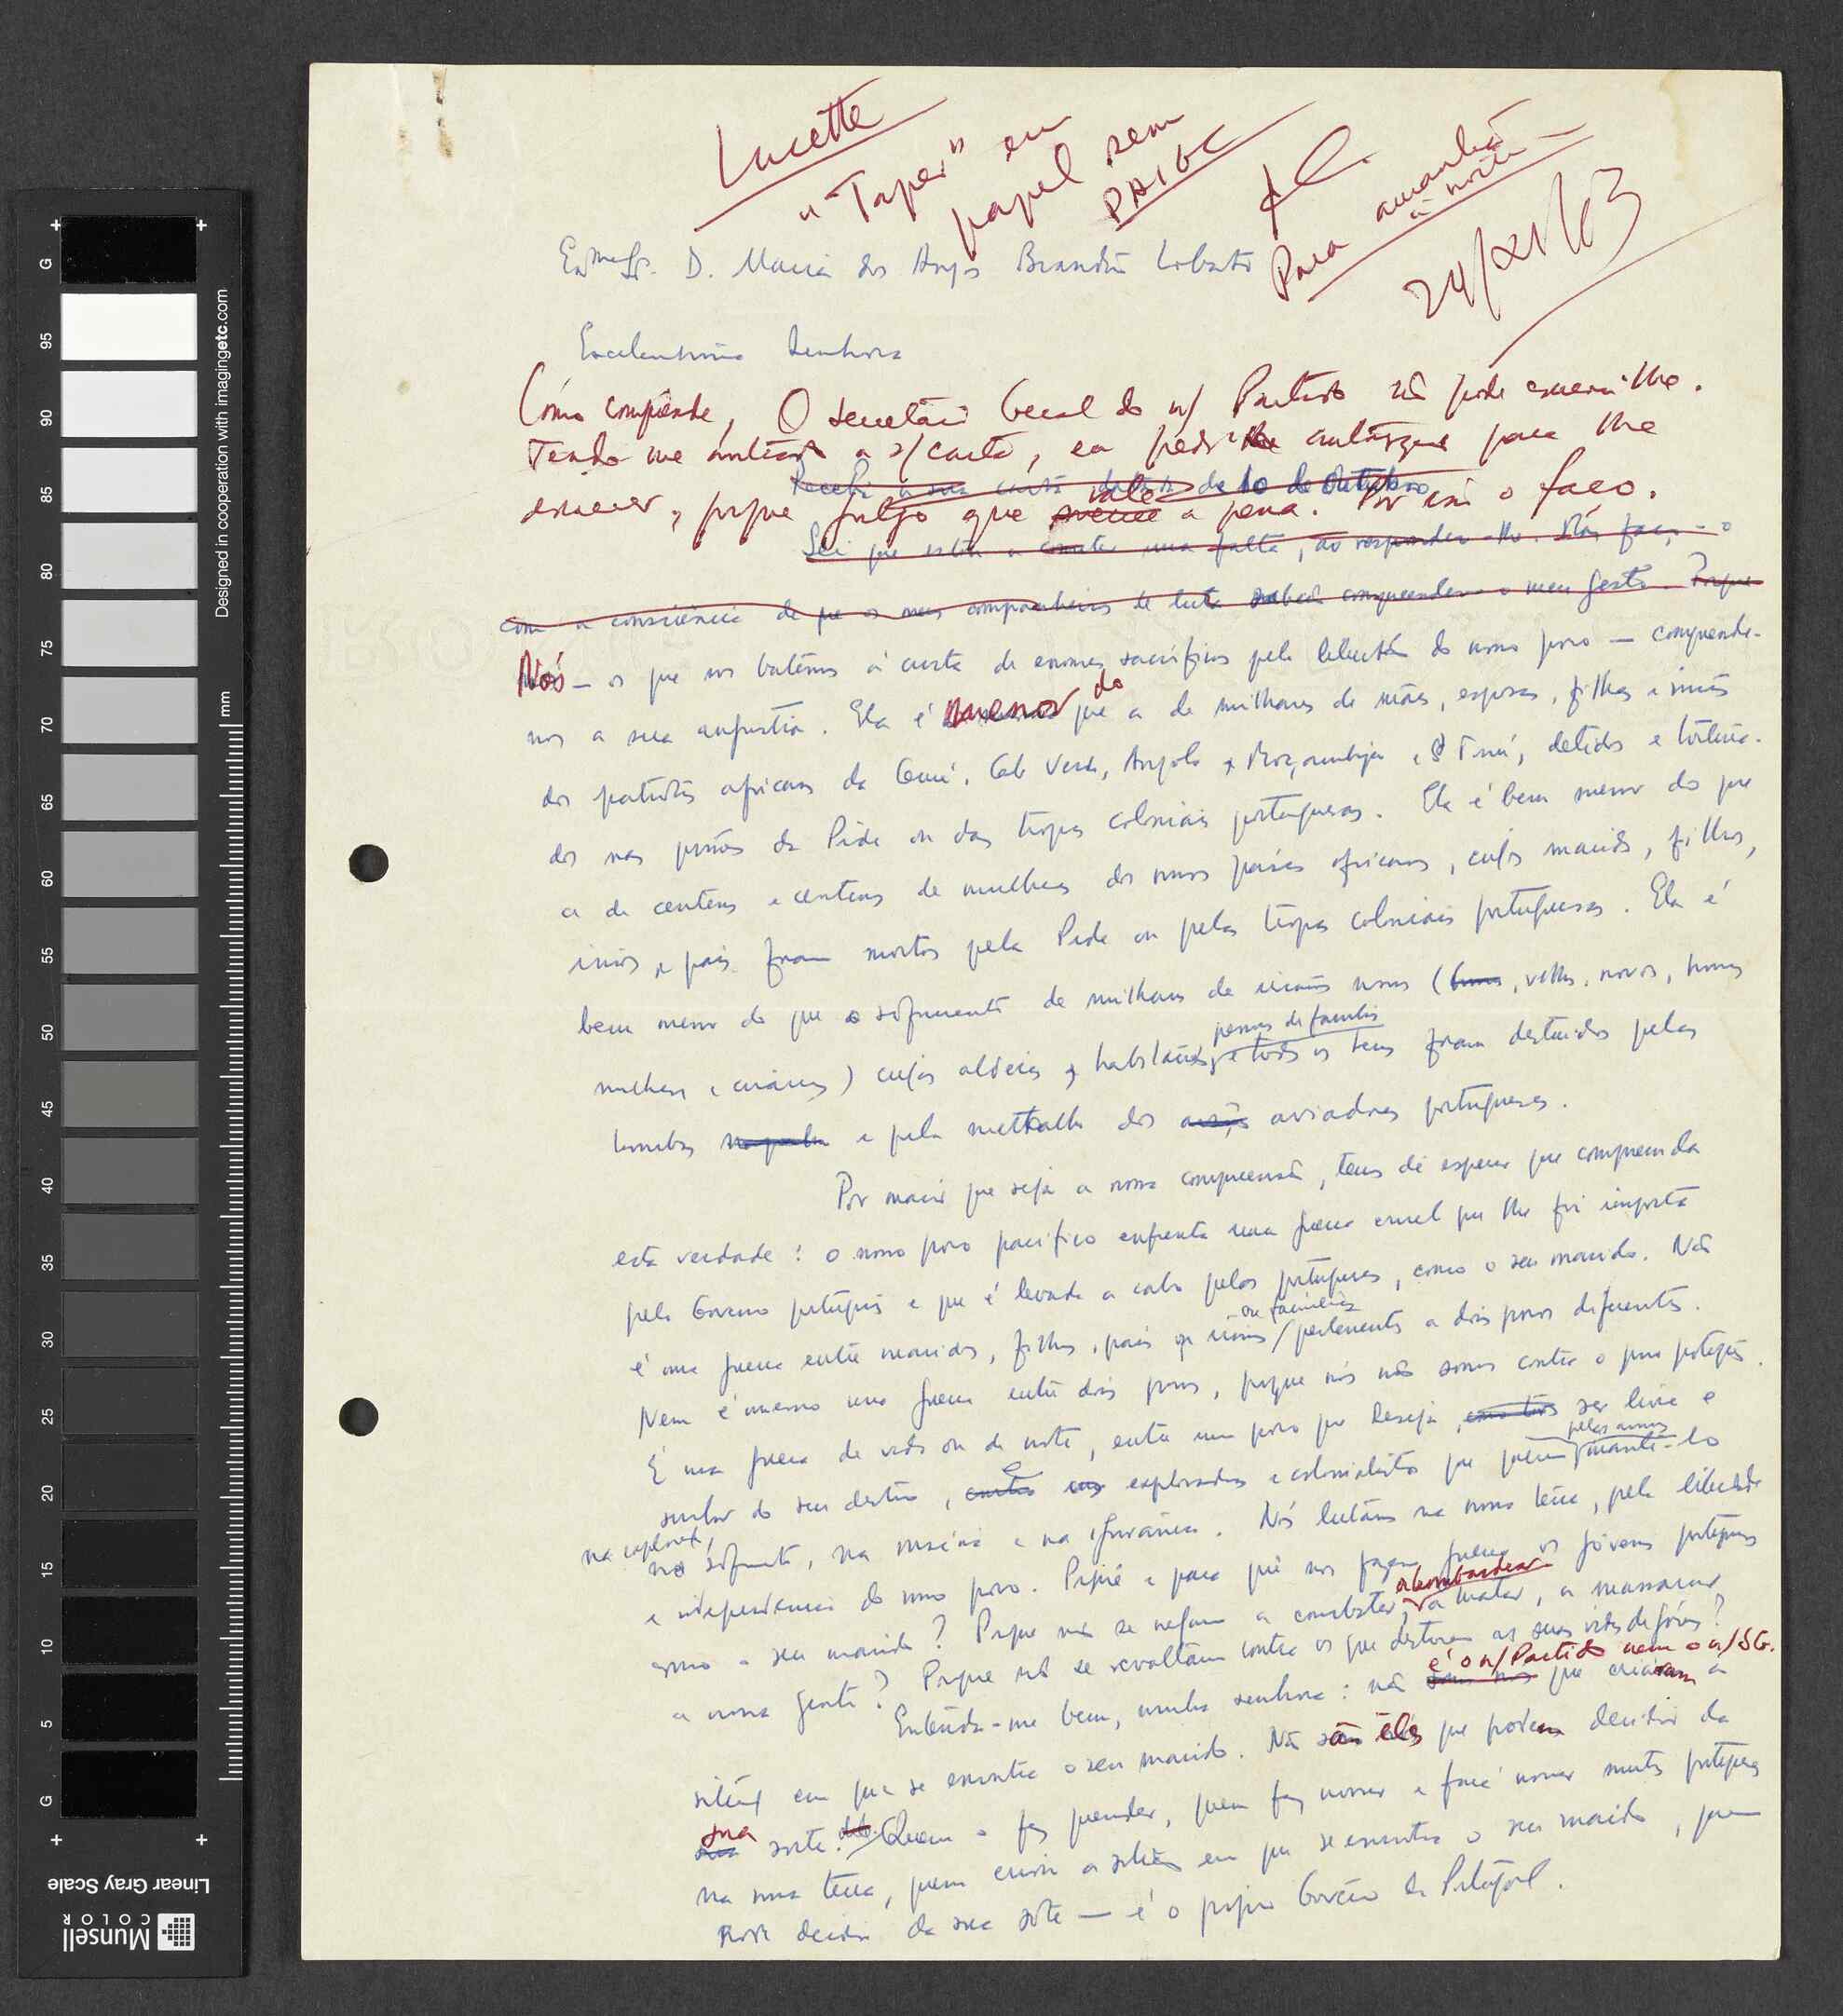 Lucette
"Taper" em
papel sem
PAIGC
Para amanhã
à noite
24/XI/63
Exma Sra. D. Maria dos Anjos Brandão Lobato
Excelentíssima Senhora
Como compreende, O secretário Geral do n/ Partido não pode escrever-lhe.
Tendo me mostrado a s/ carta, eu pedi-lhe autorização para lhe
Recebi a sua carta datada de 10 de Outubro
escrever, porque julgo que vale a pena. Por isso o faço.
Sei que estou a cometer uma falta, ao responder-lhe. Mas faço-o
com a consciência de que os meus companheiros de luta saberão compreender o meu gesto. Porque
Nós — os que nos batemos à custa de enormes sacrifícios pela libertação do nosso povo — compreende-
mos a sua angústia. Ela é menor do que a de milhares de mães, esposas, filhas e irmãs
dos patriotas africanos da Guiné, Cabo Verde, Angola, Moçambique, S. Tomé, detidos e tortura-
dos nas prisões da Pide ou das tropas coloniais portuguesas. Ela é bem menor do que
a de centenas e centenas de mulheres dos nossos países africanos, cujos maridos, filhos,
irmãos e pais foram mortos pela Pide ou pelas tropas coloniais portuguesas. Ela é
bem menor do que o sofrimento de milhares de irmãos nossos (velhos, novos, homens
pessoas de família
mulheres e crianças) cujas aldeias, habitações, e todos os bens foram destruídos pelas
bombas e pela metralha dos aviadores portugueses.
Por maior que seja a nossa compreensão, temos de esperar que compreenda
esta verdade: o nosso povo pacífico enfrenta uma guerra cruel que lhe foi imposta
pelo Governo português e que é levada a cabo pelos portugueses, como o seu marido. Não
ou famílias
é uma guerra entre maridos, filhos, pais ou irmãos / pertencentes a dois povos diferentes.
Nem é mesmo uma guerra entre dois povos, porque nós não somos contra o povo português.
É uma guerra de vida ou de morte, entre um povo que deseja ser livre e
pelas armas
senhor do seu destino, e exploradores e colonialistas que querem mantê-lo
na exploração,
no sofrimento, na miséria e na ignorância. Nós lutamos na nossa terra, pela liberdade
e independência do nosso povo. Porquê e para quê nos fazem guerra os jovens portugueses
a bombardear
como o seu marido? Porque não se negam a combater, a matar, a massacrar
a nossa gente? Porque não se revoltam contra os que destroem as suas vidas de jóvens?
é o n/ Partido nem o n/ SG.
Entenda-me bem, minha senhora: não que criaram a
situação em que se encontra o seu marido. Não são êles que podem decidir da
sua sorte. Quem o fez prender, quem fez morrer e fará morrer muitos portugueses
na nossa terra, quem criou a situação em que se encontra o seu marido, quem
pode decidir da sua sorte — é o próprio Govêrno de Portugal.